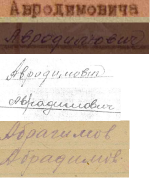 Авродимовича
Авродимович
Авродимовий
Абрадимович
Абрагимов
Абрадимов